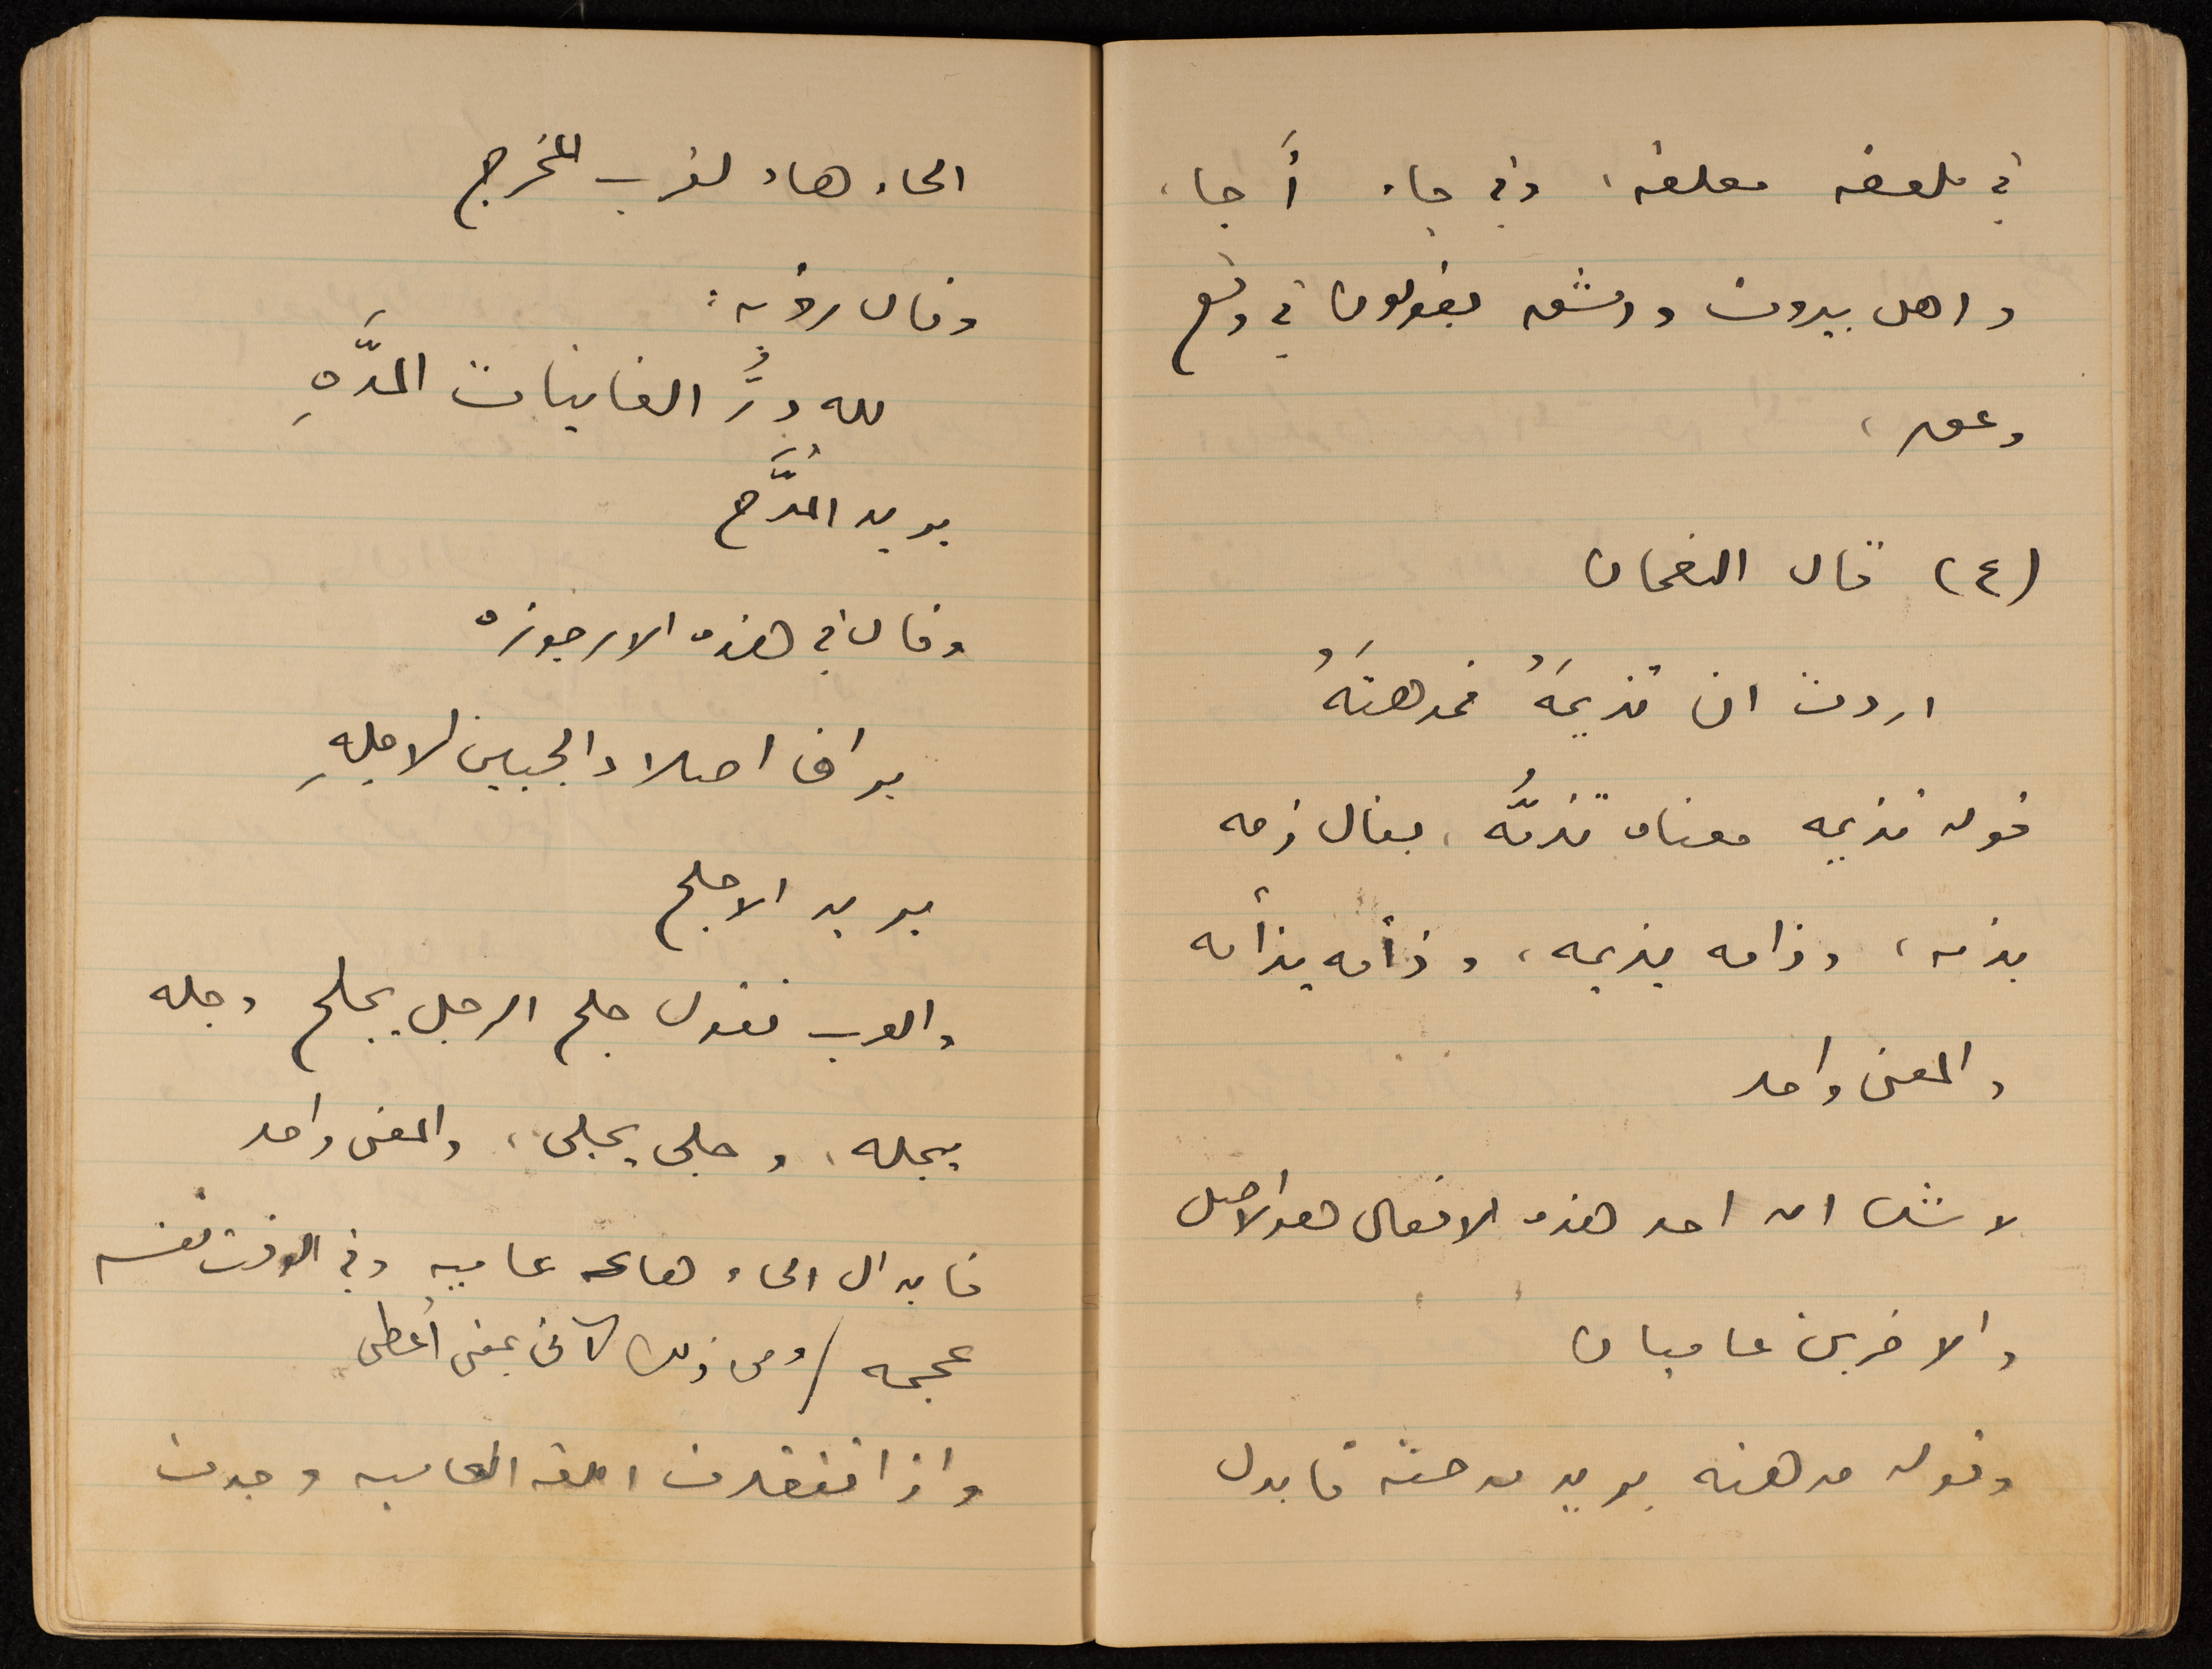 في ملعقه معلقه، وفي جاء أَجا،
واهل بيروت ودمشق يقولون في وقع
وعق،
(٤) قال النعمان
اردت ان تذيمَهُ فمدهتَهُ
قوله تذيمه معناه تذمُّه، يقال ذمه
يذمه، وذامه يذيمه، وذأمه يذأمه
والمعنى واحد
لا شك ان احد هذه الافعال هو الاصل
والاخرين عاميان
وقوله مدهته يريد مدحته فابدل
الحاء هاء لقرب المخرج
وقال رؤبه:
لله دَرُّ الغانيات المدَّهِ
يريد المُدَّح
وقال في هذه الارجوزه
براق اصلاد الجبين الاجلهِ
يريد الاجلح
والعرب تقول جلح الرجل يجلح وجله
يجله، وجلى يجلى، والمعنى واحد
فابدال الحاء هاء عاميه وفي الوقت نفسه
عجمه / ومن ذلك آتى بمعنى أعطى
واذا تفقدت اللغه العاميه وجدت